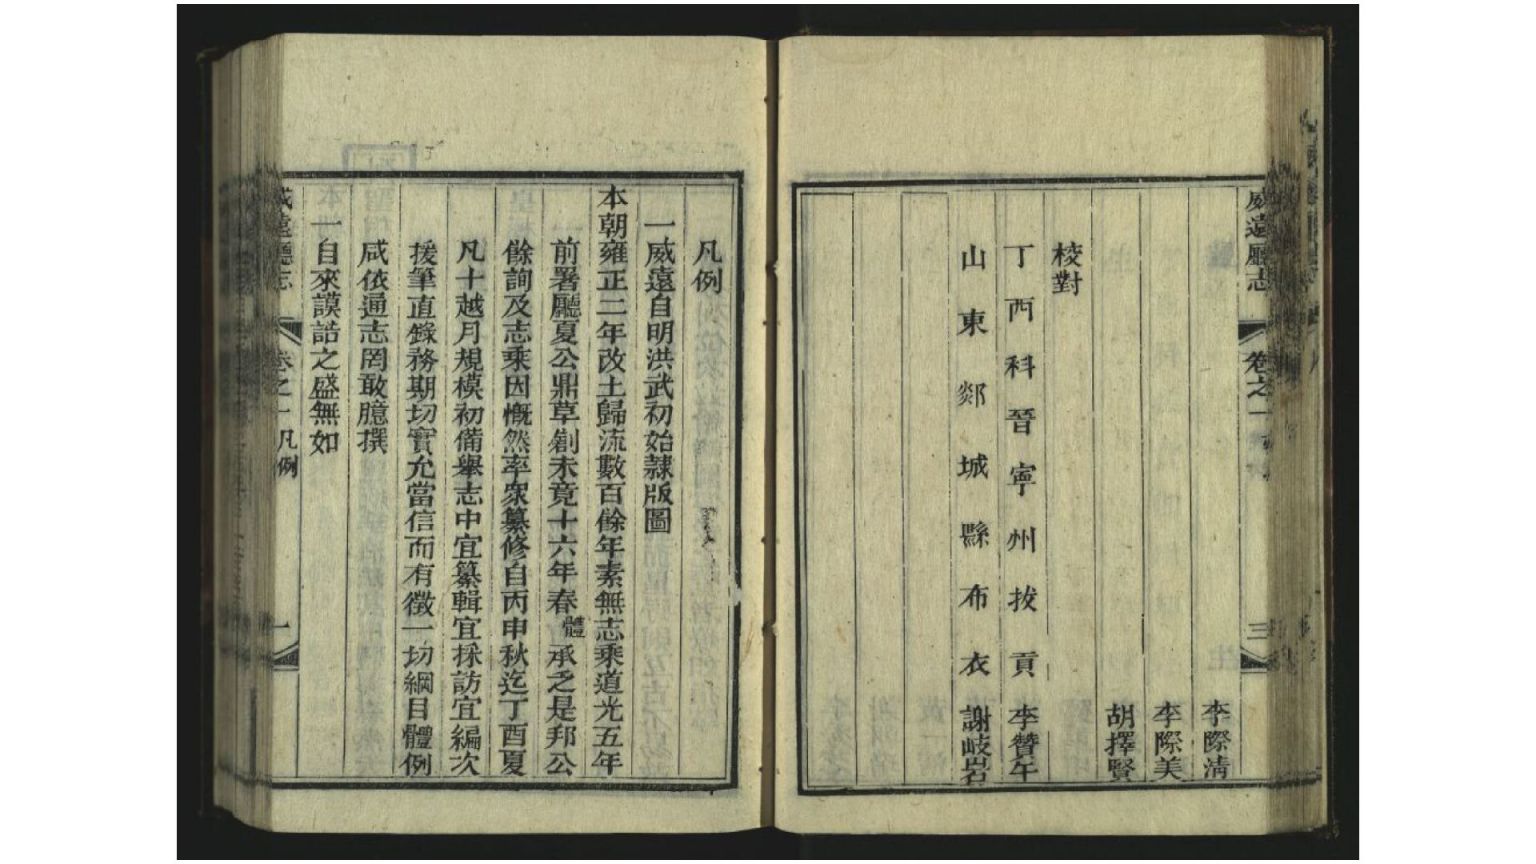 威遠廳志
卷之一
三
李際淸
李際美
胡擇賢
校對
丁酉科晉寧州拔貢李贊午
山東郯城縣布衣謝岐岩
凡例
一威遠自明洪武初始隸版圖
本朝雍正二年改土歸流數百餘年素無志乘道光五年
前署廳夏公鼎草創未竟十六年春體承乏是邦公
餘詢及志乘因慨然率衆纂修自丙申秋迄丁酉夏
凡十越月規模初備舉志中宜纂輯宜採訪宜編次
援筆直錄務期切實允當信而有徵一切綱目體例
咸依通志罔敢臆撰
一自來謨誥之盛無如
威遠廳志
卷之一凡例
一